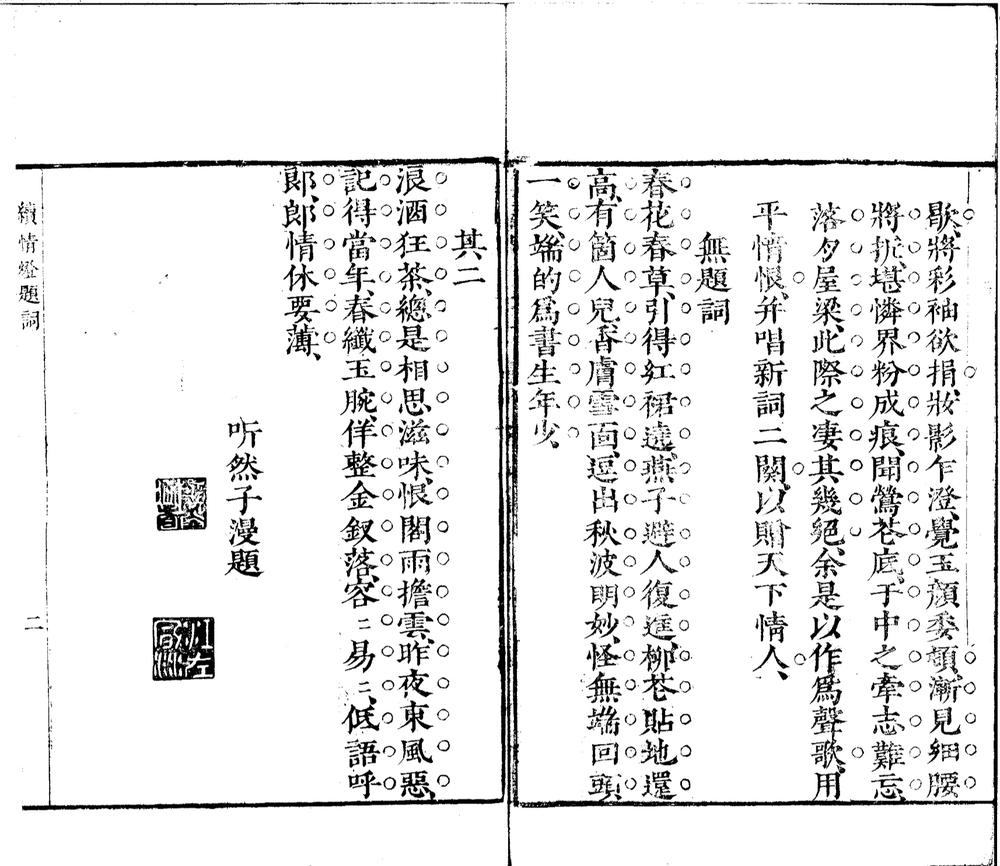 歇、將彩袖欲捐、妝影乍澄、覺玉顏委頓、漸見細腰
將扤、堪憐界粉成痕、聞鶯花底、于中之牽志難忘、
落夕屋梁、此際之淒其幾絕、余是以作爲聲歌、用
平情恨、并唱新詞二闋、以贈天下情人、
無題詞
春花春草、引得紅裙遶、燕子避人復進、柳花貼地還
高、有箇人兒、香膚雪面、逗出秋波明妙、怪無端回頭
一笑、端的爲書生年少、
其二
浪酒狂茶、總是相思滋味、恨閣雨擔雲、昨夜東風惡、
記得當年、春纖玉腕、佯整金釵落、容二易二、低語呼
郎、郎情休要薄、
听然子漫題
江左
續情燈題詞
二